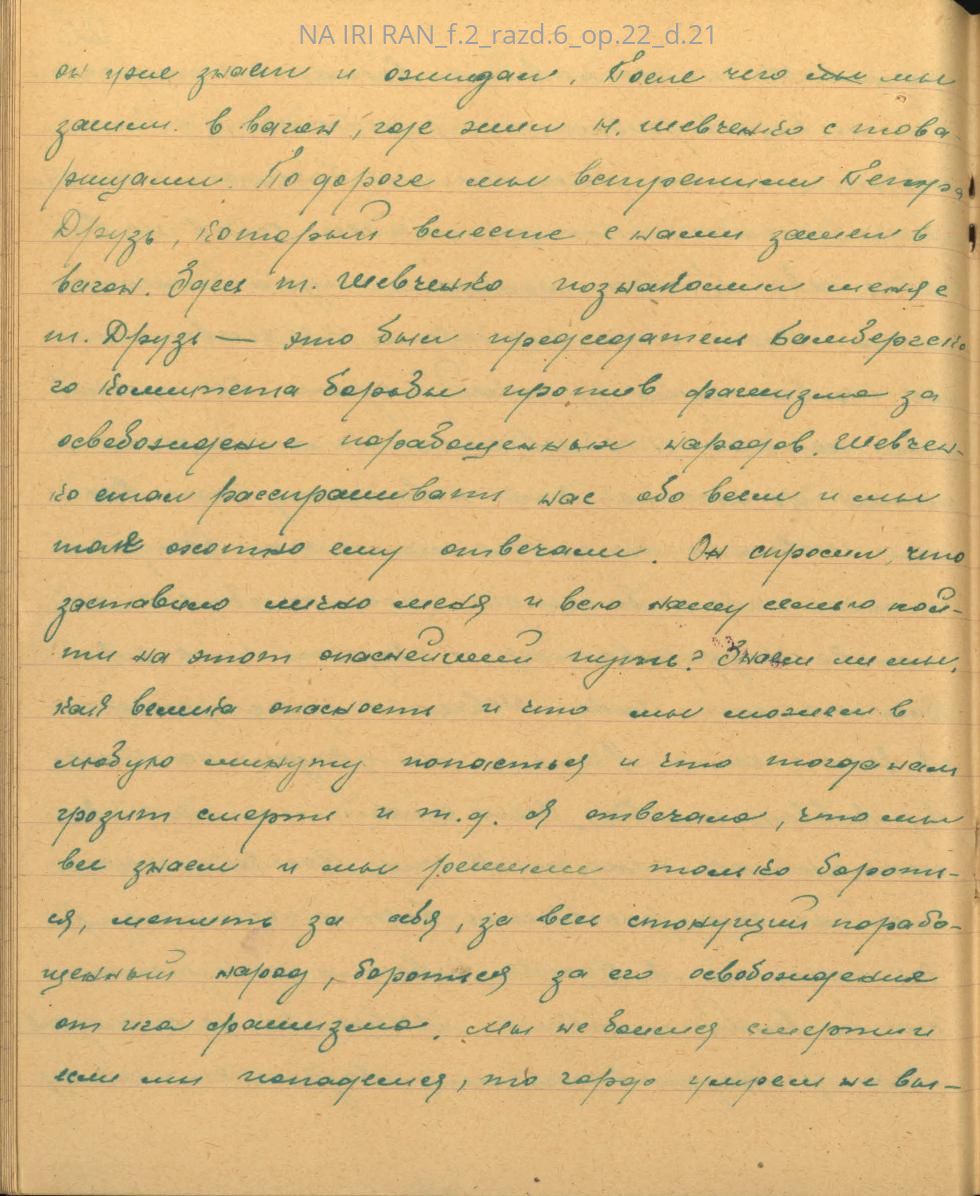 NA IRI RAN_f.2_razd.6_op.22_d.21
он уже знает и ожидает. После чего мы мы
зашли в вагон, где жил Н. Шевченко с това-
рищами. По дороге мы встретили Петра
Друзь, который вместе с нами зашел в
вагон. Здесь т. Шевченко познакомил меня с
т. Друзь — это был председатель Бамбергско-
го комитета борьбы против фашизма за
освобождение порабощенных народов. Шевчен-
ко стал расспрашивать нас обо всем и мы
так охотно ему отвечали. Он спросил, что
заставило лично меня и всю нашу семью пой-
ти на этот опаснейший путь? Знаем ли мы,
как велика опасность и что мы можем в
любую минуту попасться и что тогда нам
грозит смерть и т.д. Я отвечала, что мы
все знаем и мы решили только бороть-
ся, мстить за себя, за весь стонущий порабо-
щенный народ, бороться за его освобождение
от ига фашизма. Мы не боимся смерти и
если мы попадемся, то гордо умрем не вы-